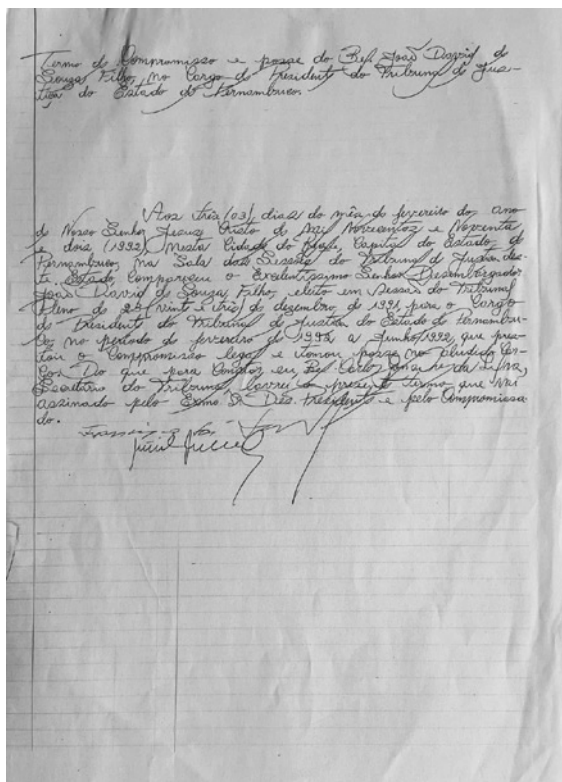 Termo de Compromisso e posse do Bel. João David de
Souza Filho, no Cargo de Presidente do Tribunal de Jus-
tiça do Estado de Pernambuco.
Aos três (03) dias do mês de fevereiro do ano
de Nosso Senhor Jesus Cristo de Mil Novecentos e Noventa
e dois (1992) Nesta Cidade do Recife, Capital do Estado de
Pernambuco, na Sala das Sessões do Tribunal de Justiça des-
te Estado, Compareceu o Excelentíssimo Senhor Desembargador
João David de Souza Filho, eleito em Sessão do Tribunal
Pleno de 23 (vinte e três) de dezembro de 1991, para o Cargo
de Presidente do Tribunal de Justiça do Estado de Pernambu-
co, no período de fevereiro de 1992 a Junho/1992, que pres-
tou o Compromisso legal e tomou posse no aludido Car-
go. Do que para Constar eu, Bel. Carlos da Silva,
Secretário do Tribunal lavrei o presente termo que vai
assinado pelo Exmo. Sr. Des. Presidente e pelo Compromissa-
do.